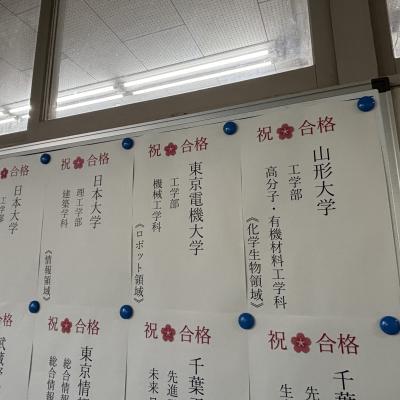 祝 合格
山形大学
工学部
高分子・有機材料工学科
《化学生物領域》
祝 合格
東京電機大学
工学部
機械工学科
《ロボット領域》
祝 合格
日本大学
理工学部
建築学科
《情報領域》
合格
日本大学
工学
祝 合格
千葉
先
生
祝 合格
千葉
先進
未来
祝 合格
東京情
総合情
総合情
合格
武蔵